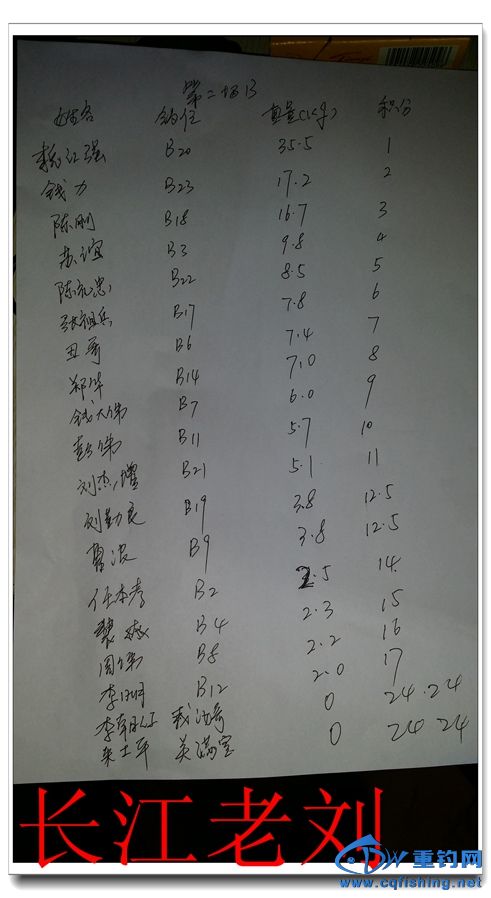 第二场B
姓名 钓位 重量(kg) 积分
江强 B20 35.5 1
钱力 B23 17.2 2
陈刚 B18 16.7 3
苏谊 B3 9.8 4
陈礼忠 B22 8.5 5
张祖兵 B17 7.8 6
丑哥 B6 7.4 7
郑华 B14 7.0 8
钱大伟 B7 6.0 9
彭伟 B11 5.7 10
刘杰 B21 5.1 11
刘勤良 B19 3.8 12.5
雷波 B9 3.8 12.5
任本孝 B2 2.5 14
B4 2.3 15
周伟 B8 2.2 16
李明 B12 2.0 17
0 24.24
朱士军 0 24 24
长江老刘
重钓网
www.cqfishing.net